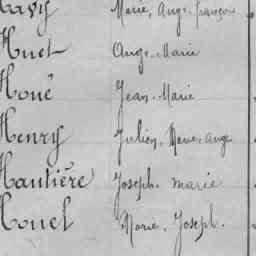 Marie, Ange. françois
Huet Ange-Marie
Houé Jean-Marie
Henry Julien, Marie Ange
Hautière Joseph. marie
Houel Marie, Joseph.